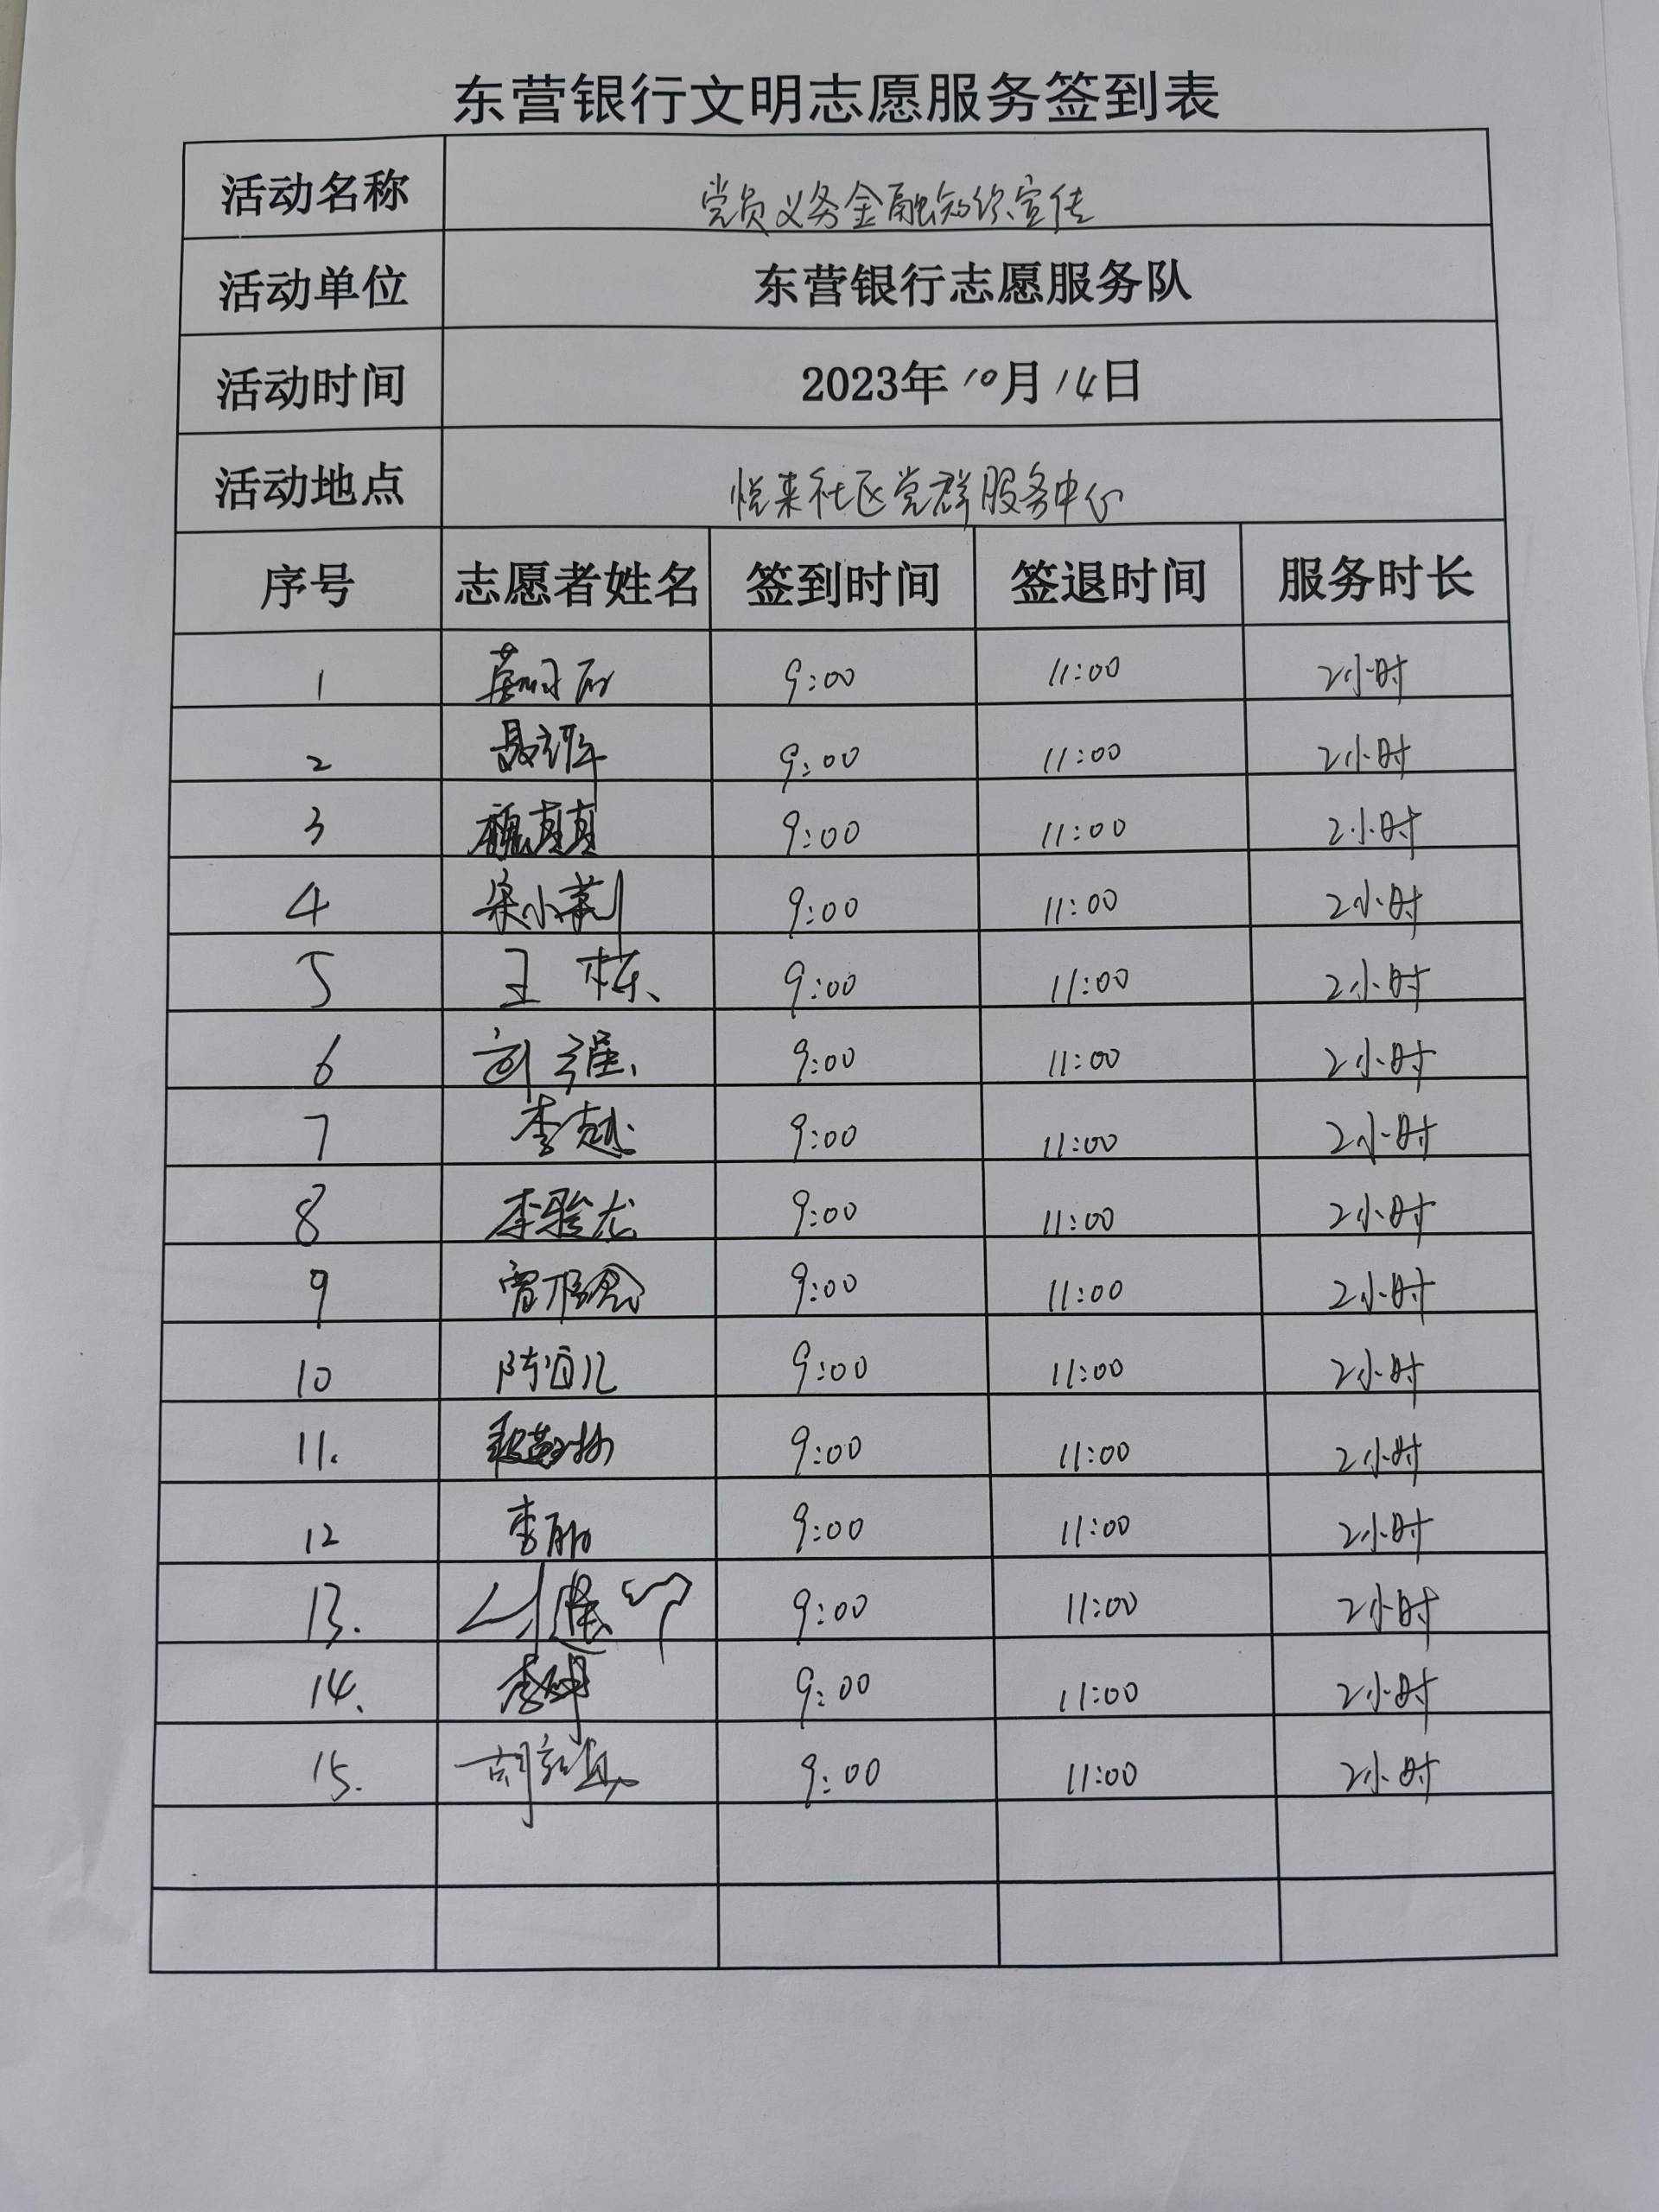 东营银行文明志愿服务签到表
活动名称 党员义务金融知识宣传
活动单位 东营银行志愿服务队
活动时间 2023年10月14日
活动地点 悦来社区党群服务中心
序号 志愿者姓名 签到时间 签退时间 服务时长
1 9:00 11:00 2小时
2 9:00 11:00 2小时
3 魏真真 9:00 11:00 2小时
4 9:00 11:00 2小时
5 王栋 9:00 11:00 2小时
6 刘强 9:00 11:00 2小时
7 李越 9:00 11:00 2小时
8 李骏龙 9:00 11:00 2小时
9 9:00 11:00 2小时
10 9:00 11:00 2小时
11. 9:00 11:00 2小时
12 李丽 9:00 11:00 2小时
13. 9:00 11:00 2小时
14. 9:00 11:00 2小时
15. 9:00 11:00 2小时